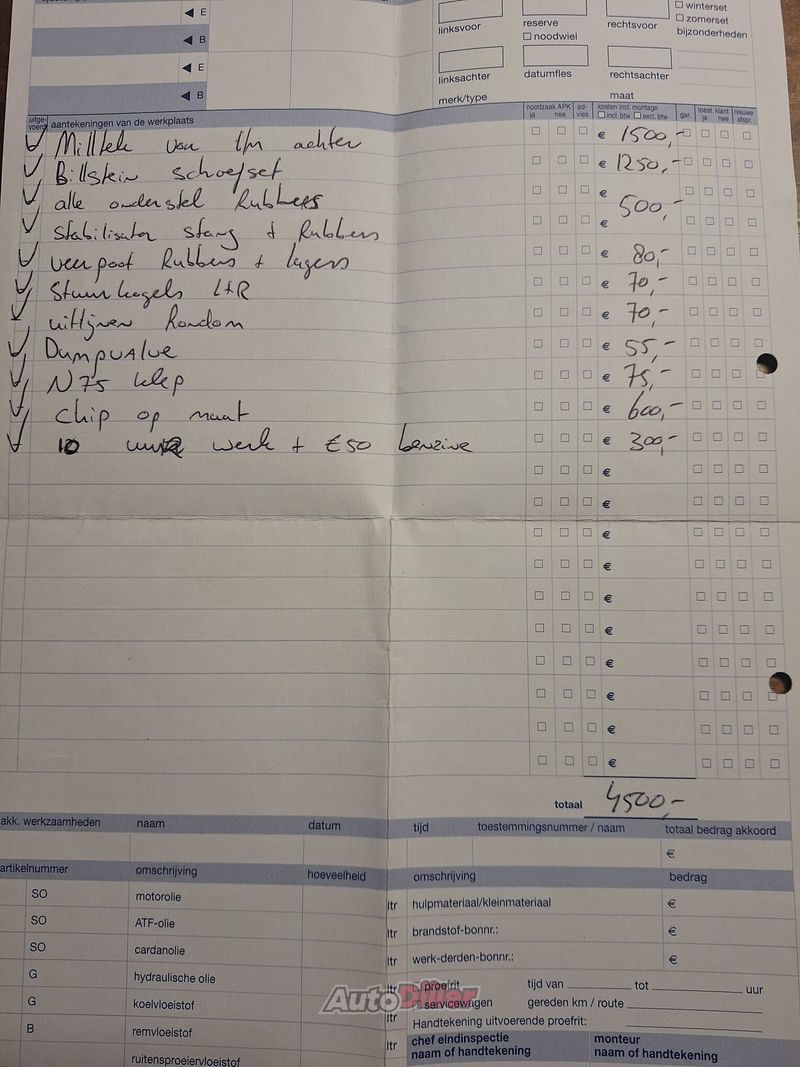 E
B
E
B
linksvoor
reserve
noodwiel
rechtsvoor
winterset
zomerset
bijzonderheden
linksachter
datumfles
rechtsachter
merk/type
maat
uitge-voerd aantekeningen van de werkplaats
noodzaak APK ja nee
ad-vies
kosten incl. montage
incl. btw excl. btw
gar.
toest. klant ja nee
nieuwe afspr.
Milltek van t/m achter € 1500,-
Billstein schoefset € 1250,-
alle onderstel Rubbers €
500,-
stabilisator stang + Rubbers €
veerpoot Rubbers + lagers € 80,-
Stuurkogels L+R € 70,-
uitlijnen Rondom € 70,-
Dumpvalve € 55,-
N75 klep € 75,-
chip op maat € 600,-
10 uur werk + €50 benzine € 300,-
€
€
€
€
€
€
€
€
€
€
totaal 4500,-
akk. werkzaamheden naam datum tijd toestemmingsnummer / naam totaal bedrag akkoord
€
artikelnummer omschrijving hoeveelheid omschrijving bedrag
SO motorolie ltr hulpmateriaal/kleinmateriaal €
SO ATF-olie ltr brandstof-bonnr.: €
SO cardanolie ltr werk-derden-bonnr.: €
G hydraulische olie ltr proefrit tijd van tot uur
AutoDiller
G koelvloeistof ltr servicewagen gereden km / route
B remvloeistof ltr Handtekening uitvoerende proefrit:
ruitensproeiervloeistof ltr chef eindinspectie monteur
naam of handtekening naam of handtekening